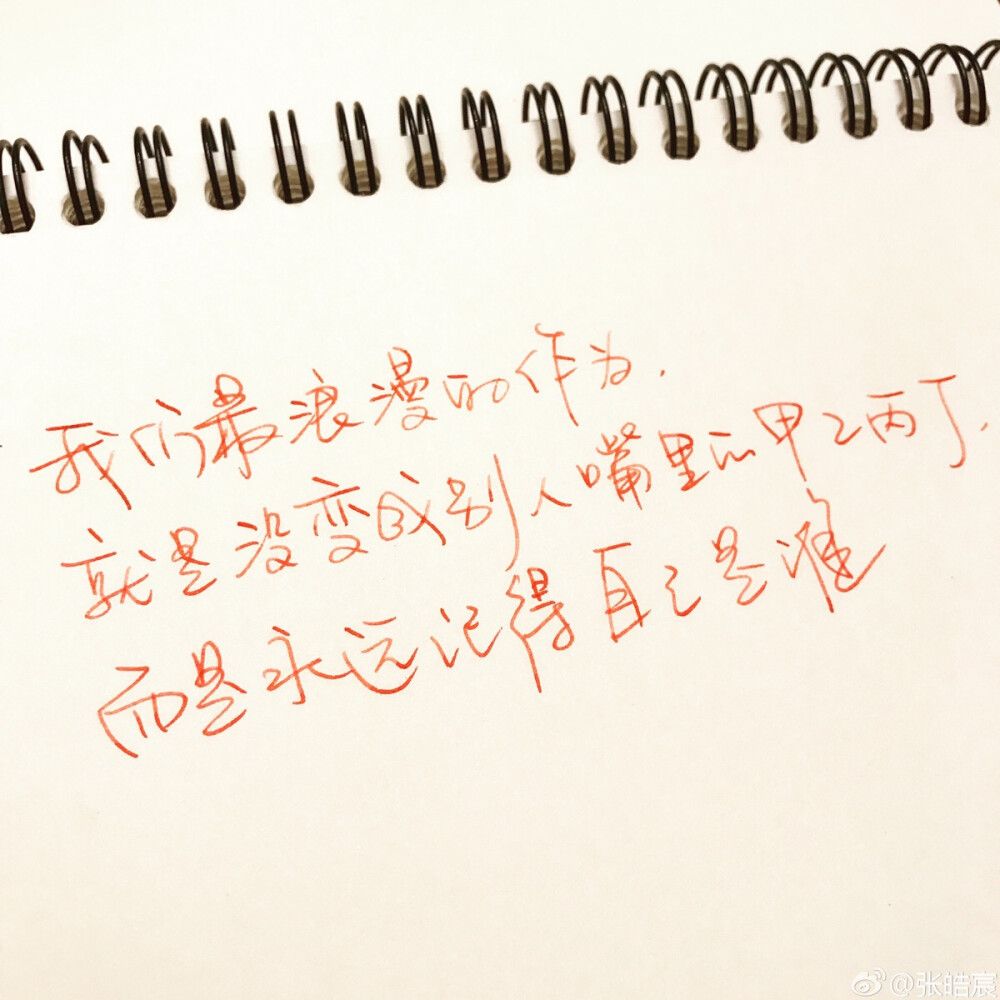 我们最浪漫的作为.
就是没变成别人嘴里的甲乙丙丁.
而是永远记得自己是谁
@张皓宸